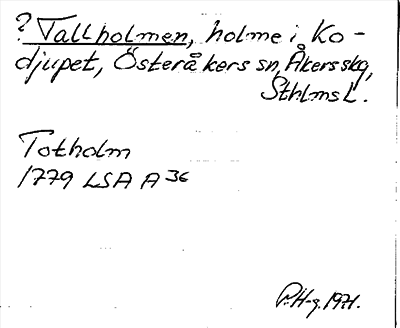 ? Tallholmen, holme i Ko-
djupet, Österåkers sn, Åkers skg,
Sthlms L.
Totholm
1779 LSA A 36
P. H-g. 1971.